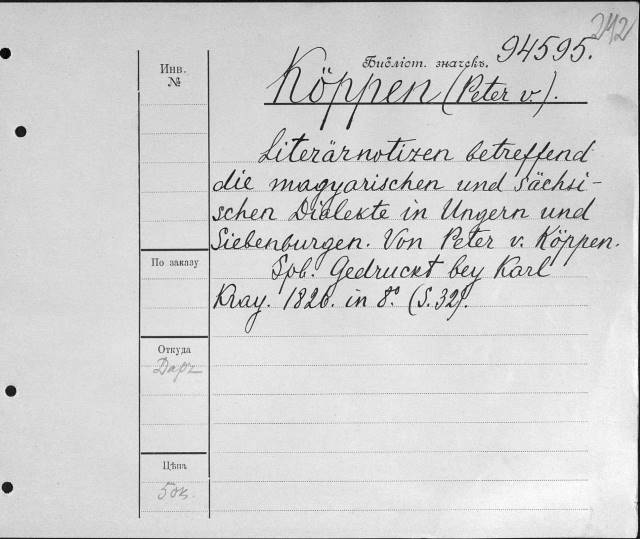 242
Библіот. значекъ. 94595.
Инв.
№
Köppen (Peter v.).
Literärnotizen betreffend
die magyarischen und sächsi-
schen Dialekte in Ungern und
Siebenburgen. Von Peter v. Köppen.
По заказу
Spb. Gedruckt bey Karl
Kray. 1826. in 8º. (S. 32).
Откуда
Даръ
Цѣна
50к.